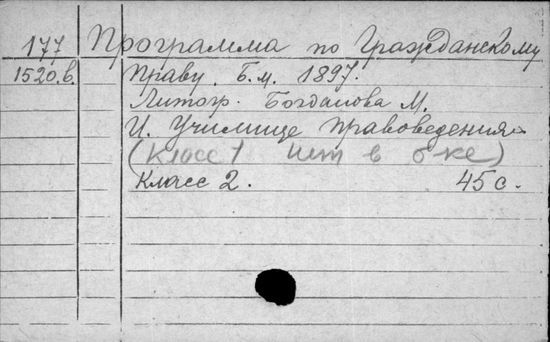 177 Программа по Гражданскому
1520.в. Праву. Б.м. 1897.
Литогр. Богданова М.
И. Училище Правоведения
(Класс 1 нет в б-ке)
Класс 2. 45 с.